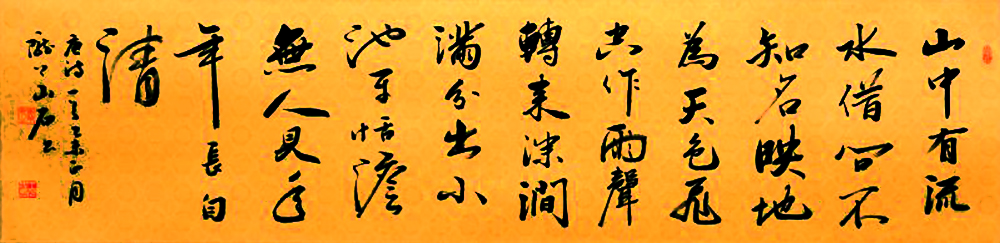 山中有流
水借問不
知名映地
為天色飛
空作雨聲
轉來深澗
滿分出小
池平恬澹
無人見年
年長自
清
唐詩一首乙未月
山石